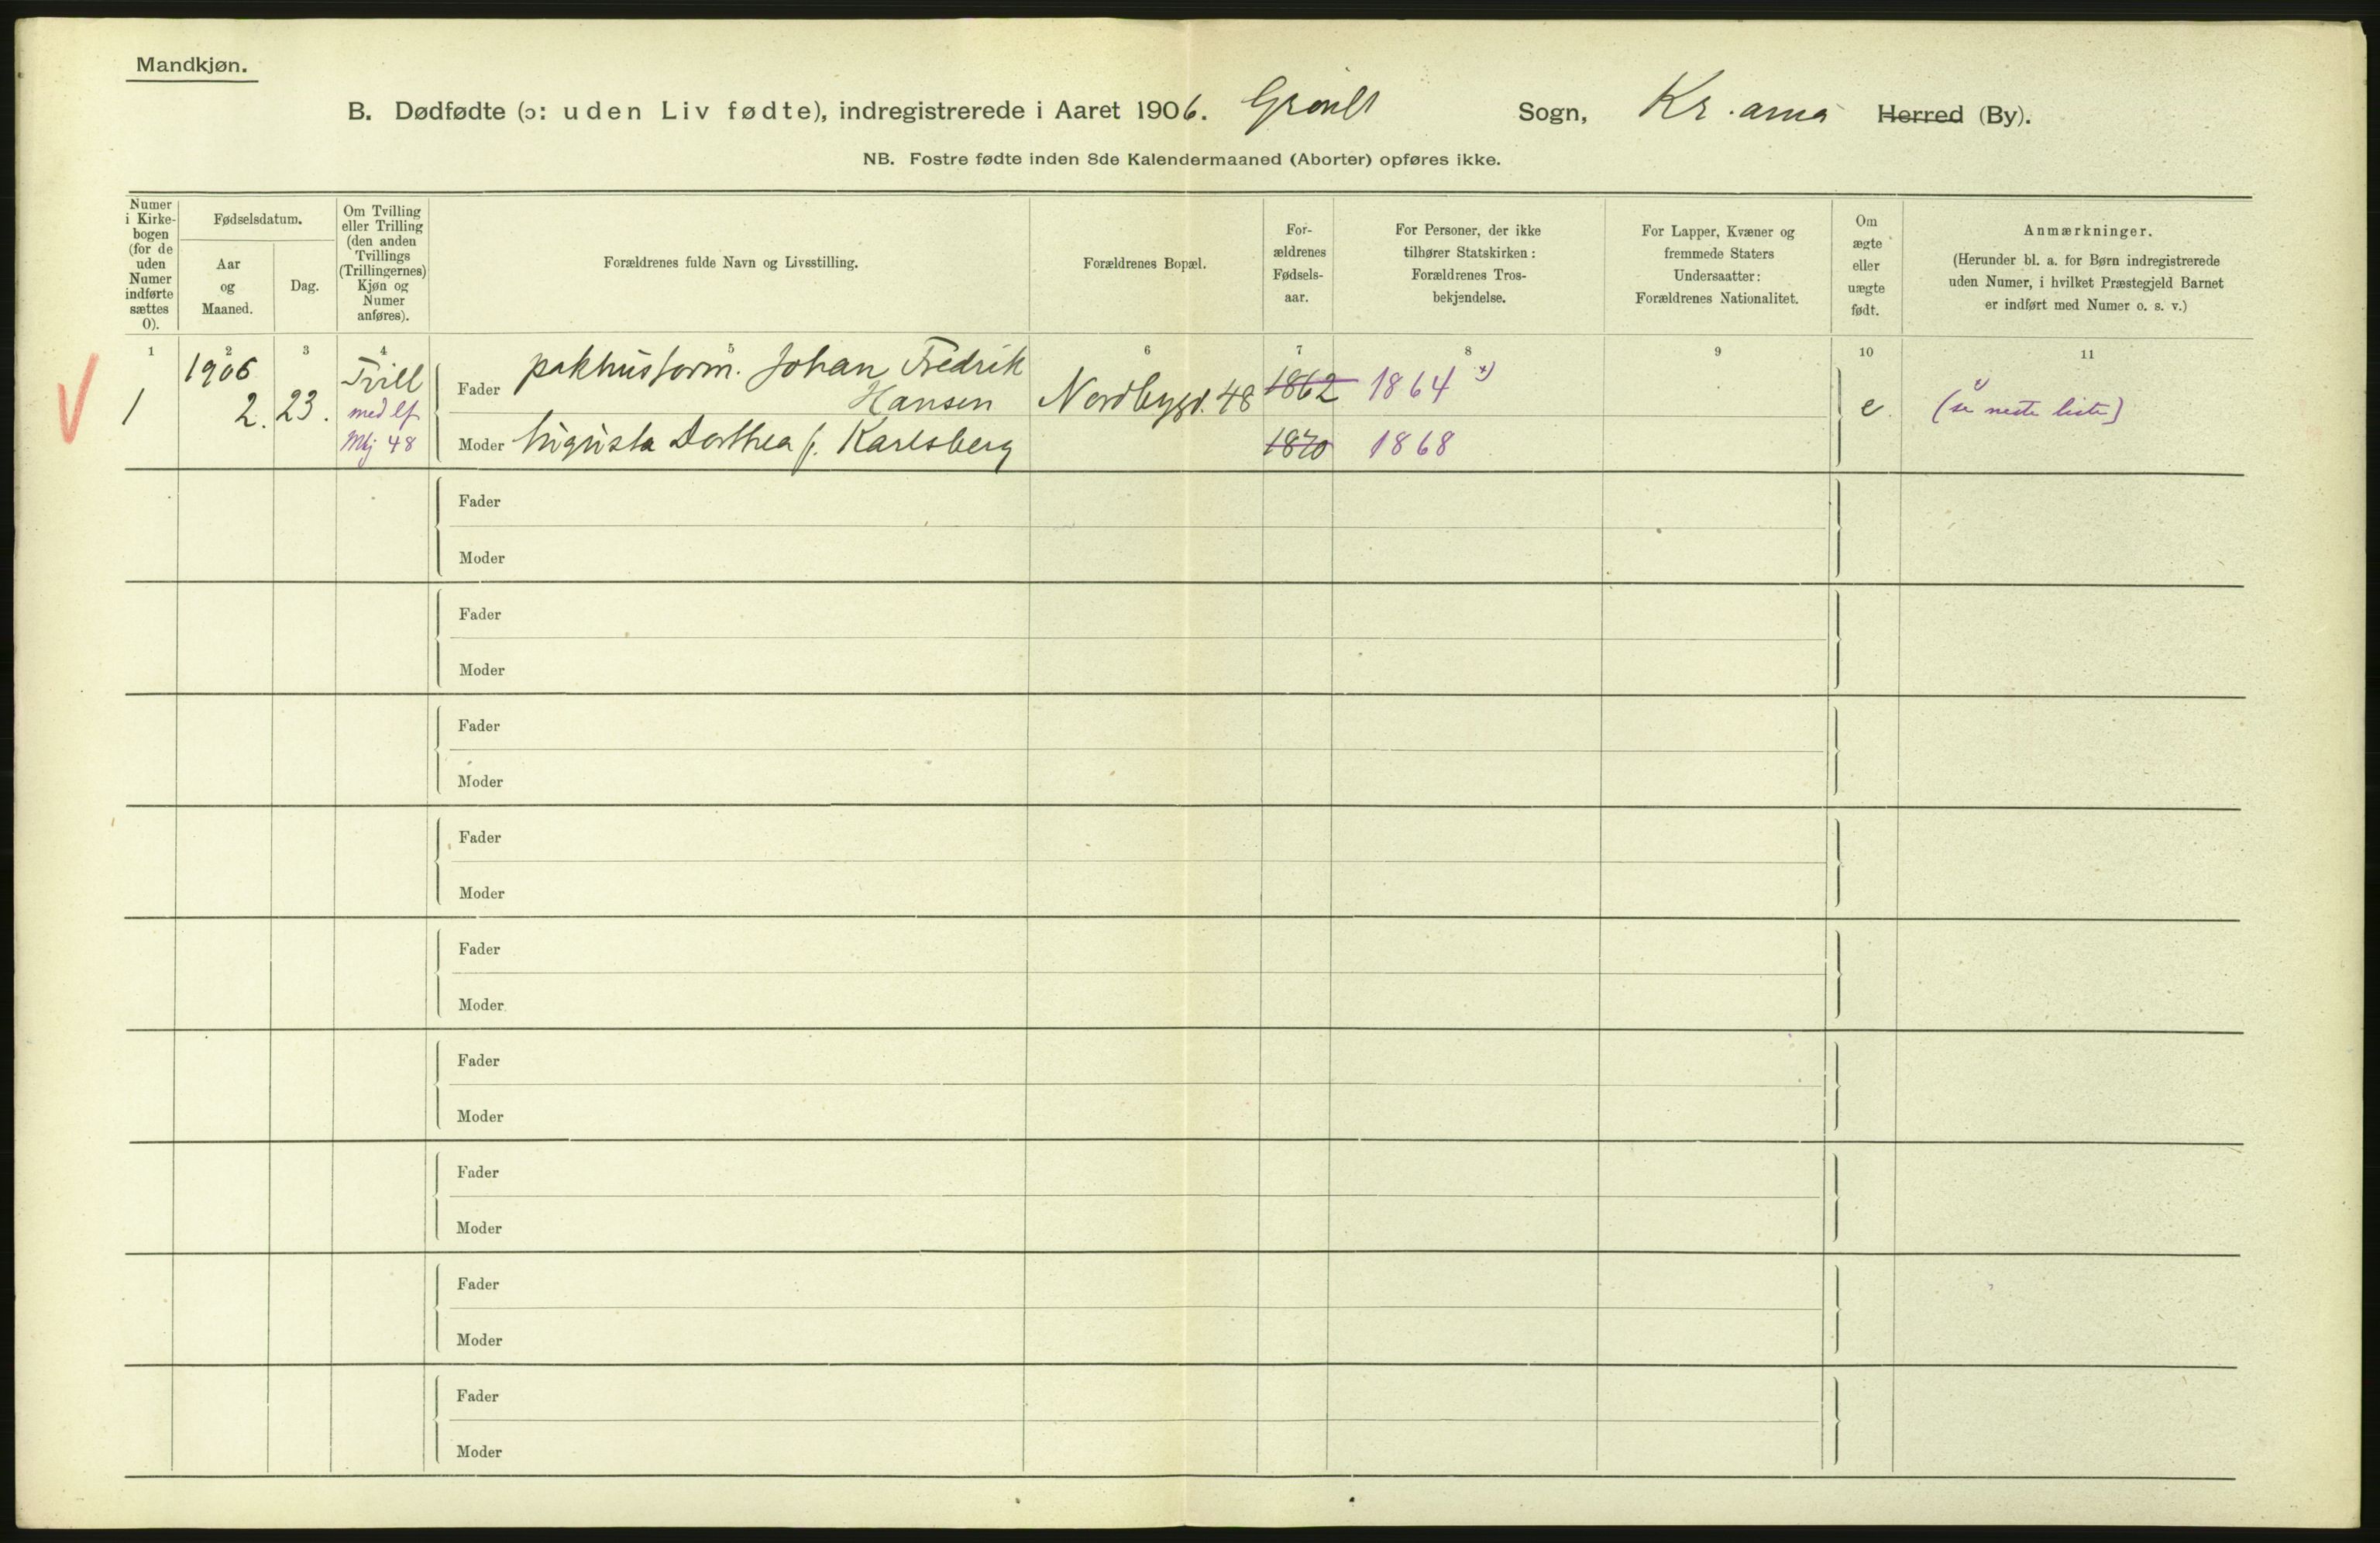 Mandkjøn.
B. Dødfødte (ɔ: uden Liv fødte), indregistrerede i Aaret 1906. Grønl. Sogn, Kr.ania Herred (By).
NB. Fostre fødte inden 8de Kalendermaaned (Aborter) opføres ikke.
Numer
i Kirke-
bogen
(for de
uden
Numer
indførte
sættes
0).
Fødselsdatum.
Aar
og
Maaned.
Dag.
Om Tvilling
eller Trilling
(den anden
Tvillings
(Trillingernes)
Kjøn og
Numer
anføres).
Forældrenes fulde Navn og Livsstilling.
Forældrenes Bopæl.
For-
ældrenes
Fødsels-
aar.
For Personer, der ikke
tilhører Statskirken:
Forældrenes Tros-
bekjendelse.
For Lapper, Kvæner og
fremmede Staters
Undersaatter:
Forældrenes Nationalitet.
Om
ægte
eller
uægte
født.
Anmærkninger.
(Herunder bl. a. for Børn indregistrerede
uden Numer, i hvilket Præstegjeld Barnet
er indført med Numer o. s. v.)
1 2 3 4 5 6 7 8 9 10 11
V
1
1906
2. 23.
Tvill
med lf
Mkj 48
Fader pakhusform. Johan Fredrik
Hansen
Nordbygd. 48
1862 1864 x)
e.
(se neste liste)
Moder Augusta Dorthea f. Karlsberg
1870 1868
Fader
Moder
Fader
Moder
Fader
Moder
Fader
Moder
Fader
Moder
Fader
Moder
Fader
Moder
Fader
Moder
Fader
Moder